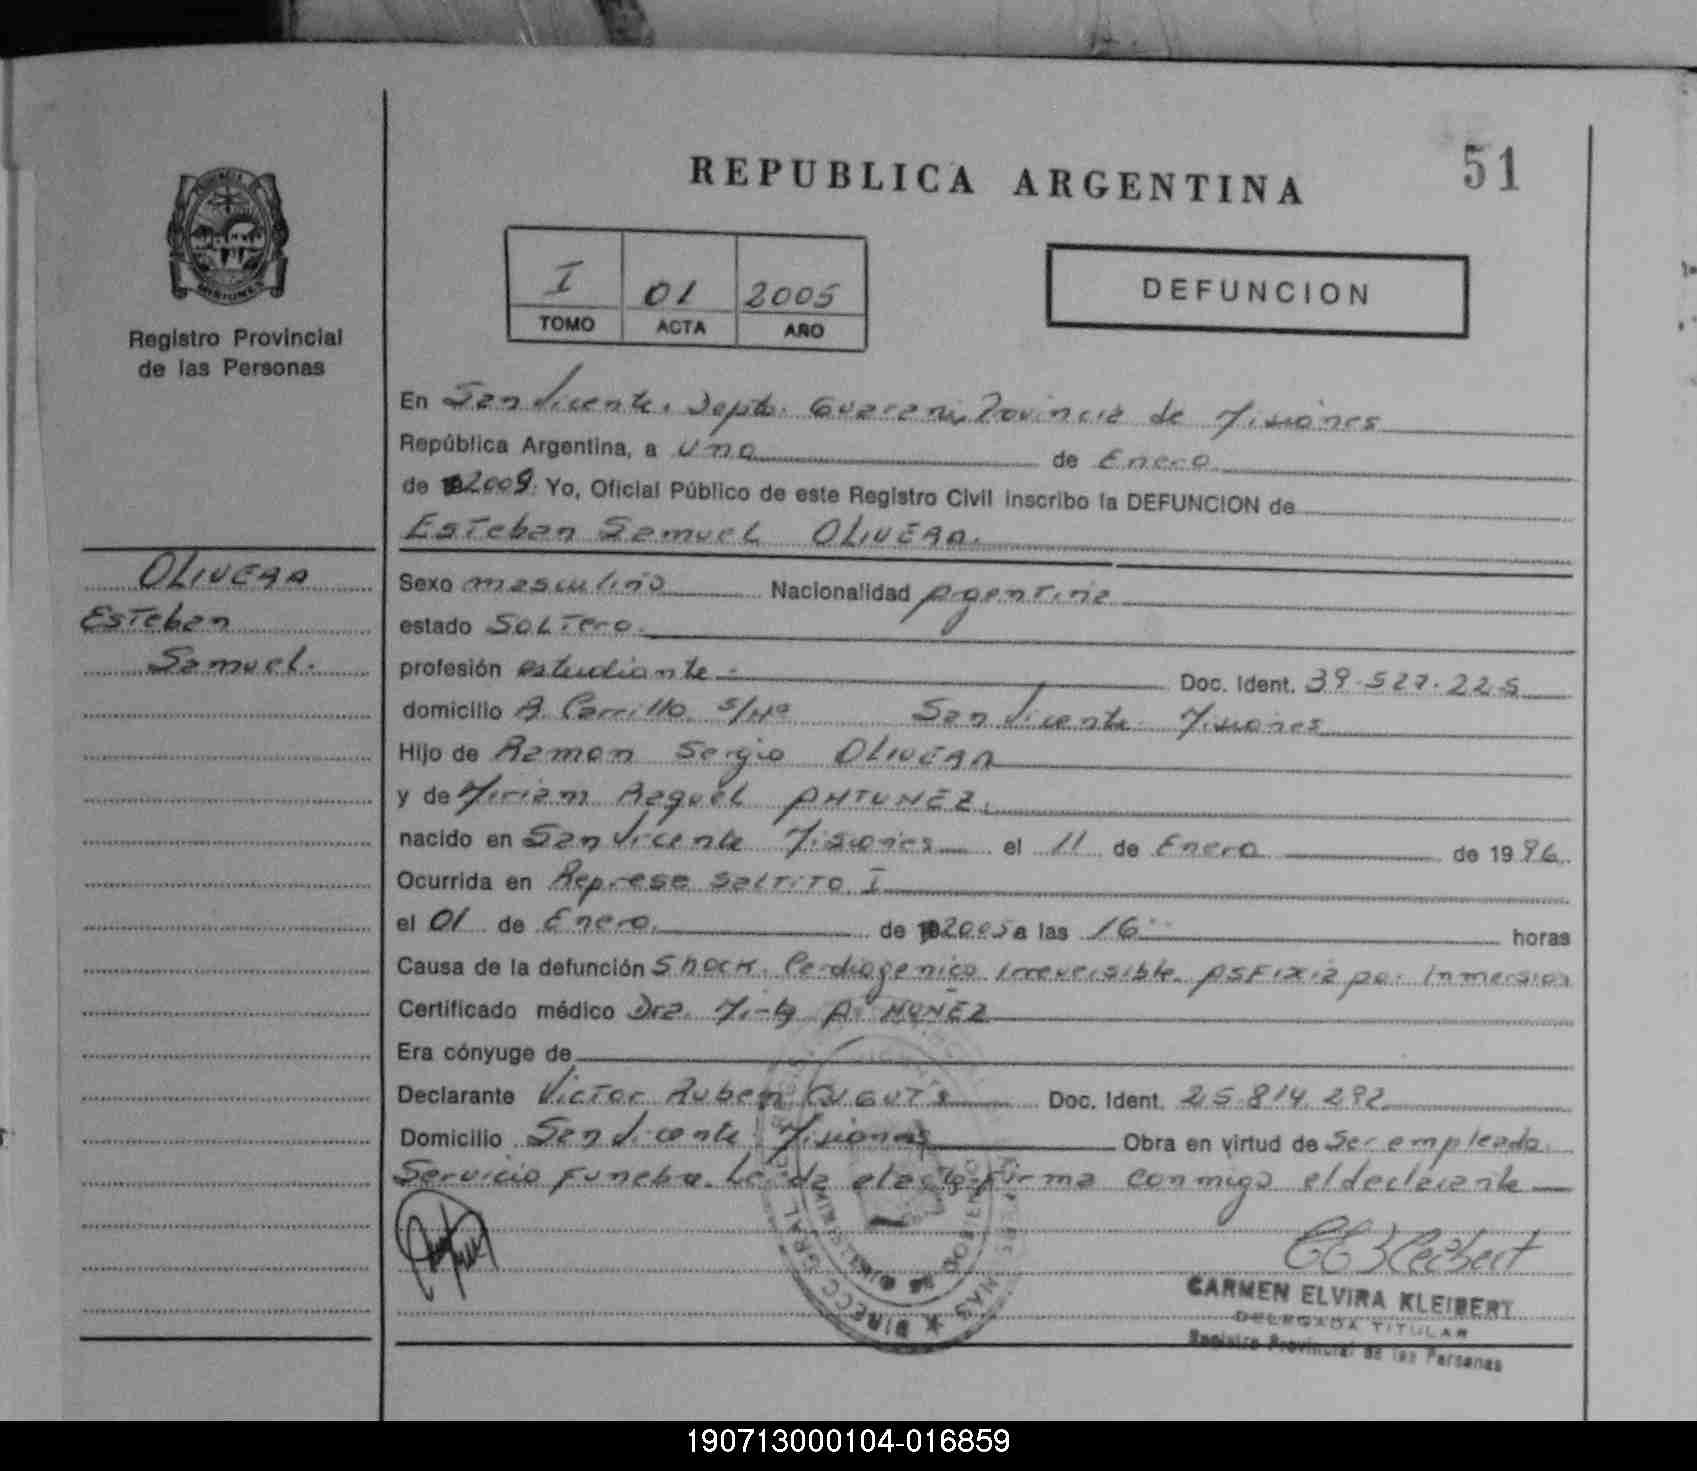 REPUBLICA ARGENTINA
51
PROVINCIA DE
MISIONES
Registro Provincial
de las Personas
I 01 2005
TOMO ACTA AÑO
DEFUNCION
En San Vicente, Depto. Guarani, Provincia de Misiones
República Argentina, a uno de Enero
de 2005. Yo, Oficial Público de este Registro Civil inscribo la DEFUNCION de
Esteban Samuel OLIVERA.
OLIVERA
Esteban
Samuel.
Sexo masculino Nacionalidad Argentina
estado Soltero.
profesión estudiante.- Doc. Ident. 39.527.225
domicilio A. Carrillo s/Nº San Vicente Misiones
Hijo de Ramon Sergio OLIVERA
y de Miriam Raquel ANTUNEZ.
nacido en San Vicente Misiones el 11 de Enero de 1996.
Ocurrida en Represa Saltito I
el 01 de Enero. de 2005 a las 16 horas
Causa de la defunción Shock Cardiogenico irreversible. Asfixia por inmersion
Certificado médico Dra. A. NUÑEZ
Era cónyuge de
Declarante Victor Ruben Doc. Ident. 25.814.292
Domicilio San Vicente Misiones Obra en virtud de Ser empleado
Servicio funebre. Leida el acta firma conmigo el declarante
CARMEN ELVIRA KLEIBERT
DELEGADA TITULAR
Registro Provincial de las Personas
190713000104-016859